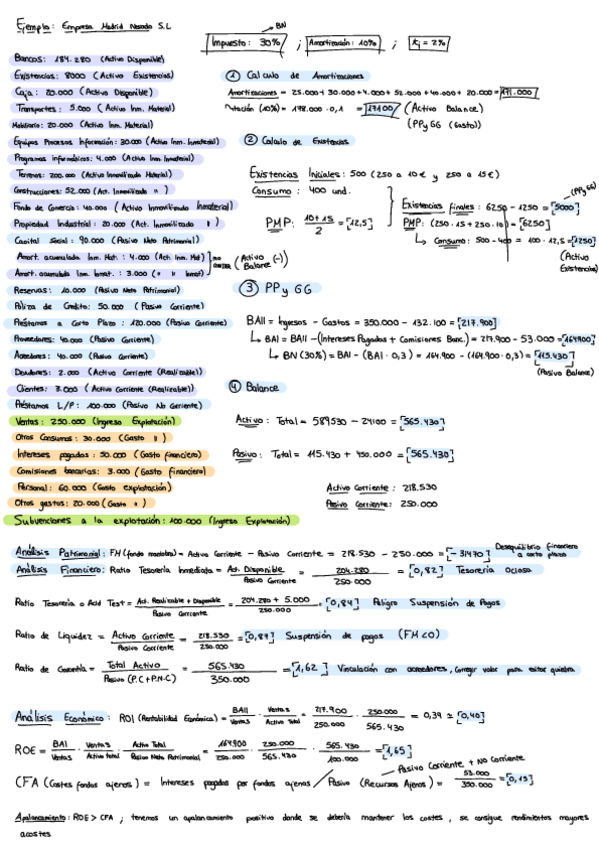 Ejemplo: Empresa Madrid Nevado S.L
BN
Impuesto: 30% ; Amortización: 10% ; Ki = 2%
Bancos: 184.280 (Activo Disponible)
Existencias: 8000 (Activo Existencias)
Caja: 20.000 (Activo Disponible)
Transportes: 5.000 (Activo Inm. Material)
Mobiliario: 20.000 (Activo Inm. Material)
Equipos Procesos Información: 30.000 (Activo Inm. Inmaterial)
Programas informáticos: 4.000 (Activo Inm. Inmaterial)
Terrenos: 200.000 (Activo Inmovilizado Material)
Construcciones: 52.000 (Act. Inmovilizado ")
Fondo de Comercio: 40.000 (Activo Inmovilizado Inmaterial)
Propiedad Industrial: 20.000 (Act. Inmovilizado ")
Capital Social: 90.000 (Pasivo Neto Patrimonial)
Amort. acumulada Inm. Mat.: 4.000 (Act. Inm. Mat)
Amort. acumulada Inm. Inmat.: 3.000 (" " Inmat)
(Activo Balance (-))
Reservas: 10.000 (Pasivo Neto Patrimonial)
Póliza de Crédito: 50.000 (Pasivo Corriente)
Préstamos a Corto Plazo: 120.000 (Pasivo Corriente)
Proveedores: 40.000 (Pasivo Corriente)
Acreedores: 40.000 (Pasivo Corriente)
Deudores: 2.000 (Activo Corriente (Realizable))
Clientes: 3.000 (Activo Corriente (Realizable))
Préstamos L/P: 100.000 (Pasivo No Corriente)
Ventas: 250.000 (Ingreso Explotación)
Otros Consumos: 30.000 (Gasto ")
Intereses pagados: 50.000 (Gasto financiero)
Comisiones bancarias: 3.000 (Gasto financiero)
Personal: 60.000 (Gasto explotación)
Otros gastos: 20.000 (Gasto ")
Subvenciones a la explotación: 100.000 (Ingreso Explotación)
① Calculo de Amortizaciones
Amortizaciones = 25.000 + 30.000 + 4.000 + 52.000 + 40.000 + 20.000 = 171.000
(10%) = 171.000 · 0,1 = 17100 (Activo Balance)
(PPyGG (Gasto))
② Calculo de Existencias
Existencias Iniciales: 500 (250 a 10€ y 250 a 15€)
Consumo: 400 und.
PMP: 10+15 / 2 = [12,5]
(PPyGG)
Existencias finales: 6250 - 1250 = [5000]
PMP: (250·15 + 250·10) = [6250]
↳ Consumo: 500 - 400 = 100 · 12,5 = [1250]
(Activo Existencias)
③ PPyGG
BAII = Ingresos - Gastos = 350.000 - 132.100 = [217.900]
↳ BAI = BAII - (Intereses Pagados + Comisiones Banc.) = 217.900 - 53.000 = [164900]
↳ BN (30%) = BAI - (BAI · 0,3) = 164.900 - (164.900 · 0,3) = [115.430]
(Pasivo Balance)
④ Balance
Activo: Total = 589.530 - 24100 = [565.430]
Pasivo: Total = 115.430 + 450.000 = [565.430]
Activo Corriente: 218.530
Pasivo Corriente: 250.000
Análisis Patrimonial: FM (fondo maniobra) = Activo Corriente - Pasivo Corriente = 218.530 - 250.000 = [-31470] Desequilibrio financiero a corto plazo
Análisis Financiero: Ratio Tesorería Inmediata = Act. Disponible / Pasivo Corriente = 204.280 / 250.000 = [0,82] Tesorería Ociosa
Ratio Tesorería o Acid Test = Act. Realizable + Disponible / Pasivo Corriente = 204.280 + 5.000 / 250.000 = [0,84] Peligro Suspensión de Pagos
Ratio de Liquidez = Activo Corriente / Pasivo Corriente = 218.530 / 250.000 = [0,87] Suspensión de pagos (FM<0)
Ratio de Garantía = Total Activo / Pasivo (P.C + P.N.C) = 565.430 / 350.000 = [1,62] Vinculación con acreedores, corregir valor para evitar quiebra
Análisis Económico: ROI (Rentabilidad Económica) = BAII / Ventas · Ventas / Activo Total = 217.900 / 250.000 · 250.000 / 565.430 = 0,39 ≃ [0,40]
ROE = BAI / Ventas · Ventas / Activo total · Activo Total / Pasivo Neto Patrimonial = 164.900 / 250.000 · 250.000 / 565.430 · 565.430 / 100.000 = [1,65]
Pasivo Corriente + No Corriente
CFA (Costes fondos ajenos) = Intereses pagados por fondos ajenos / Pasivo (Recursos Ajenos) = 53.000 / 350.000 = [0,15]
Apalancamiento: ROE > CFA ; tenemos un apalancamiento positivo donde se debería mantener los costes, se consigue rendimientos mayores
acostes